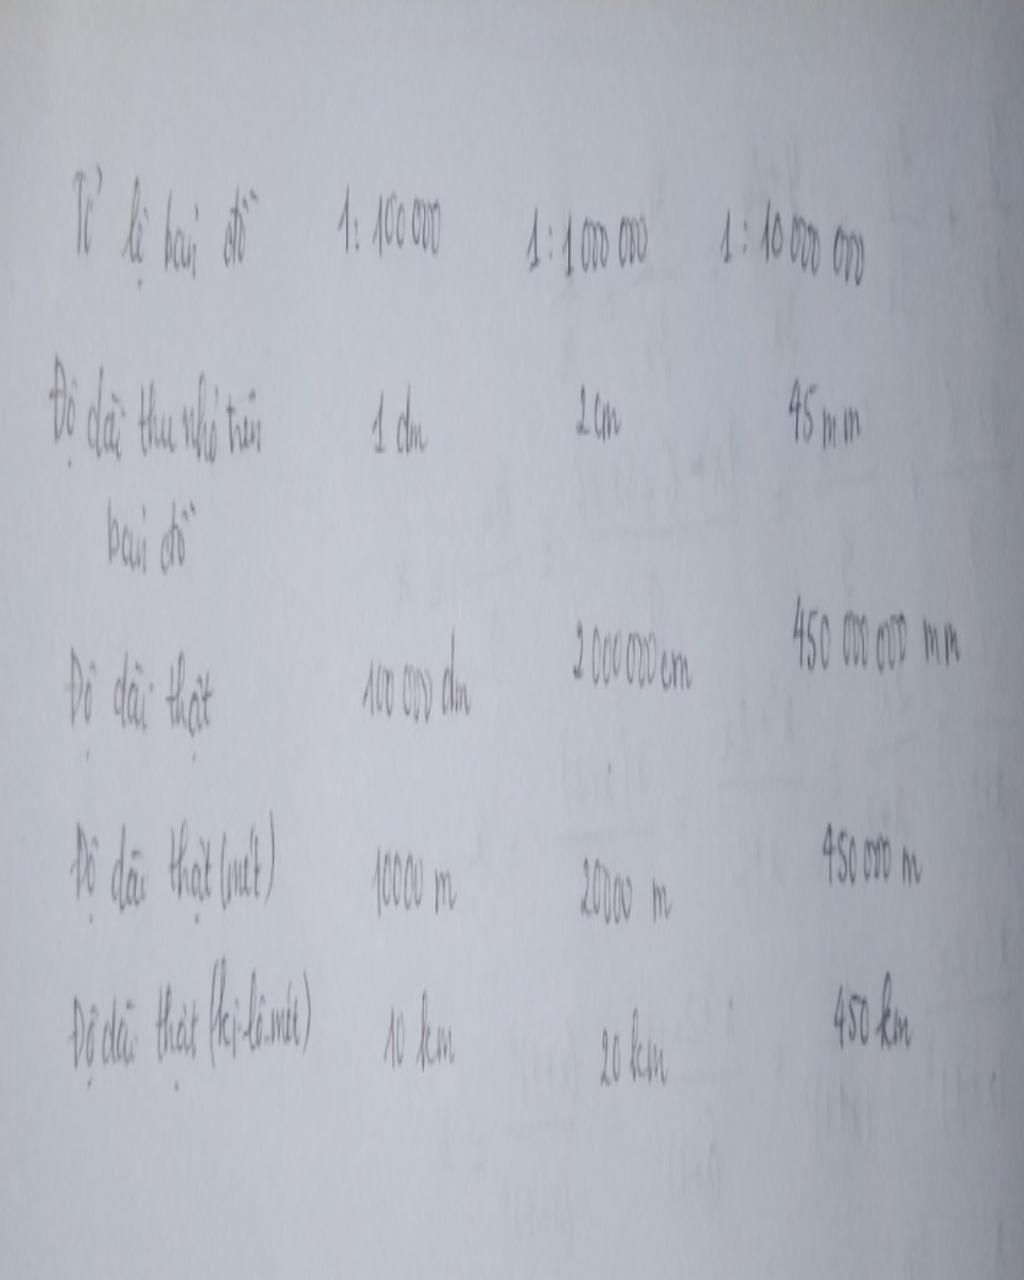 Tỉ lệ bản đồ 1: 100 000 1 : 1 000 000 1 : 10 000 000
Độ dài thu nhỏ trên 1 dm 2cm 45 mm
bản đồ
Độ dài thật 100 000 dm 2 000 000 cm 450 000 000 mm
Độ dài thật (mét) 10000 m 20000 m 450 000 m
Độ dài thật (ki-lô-mét) 10 km 20 km 450 km